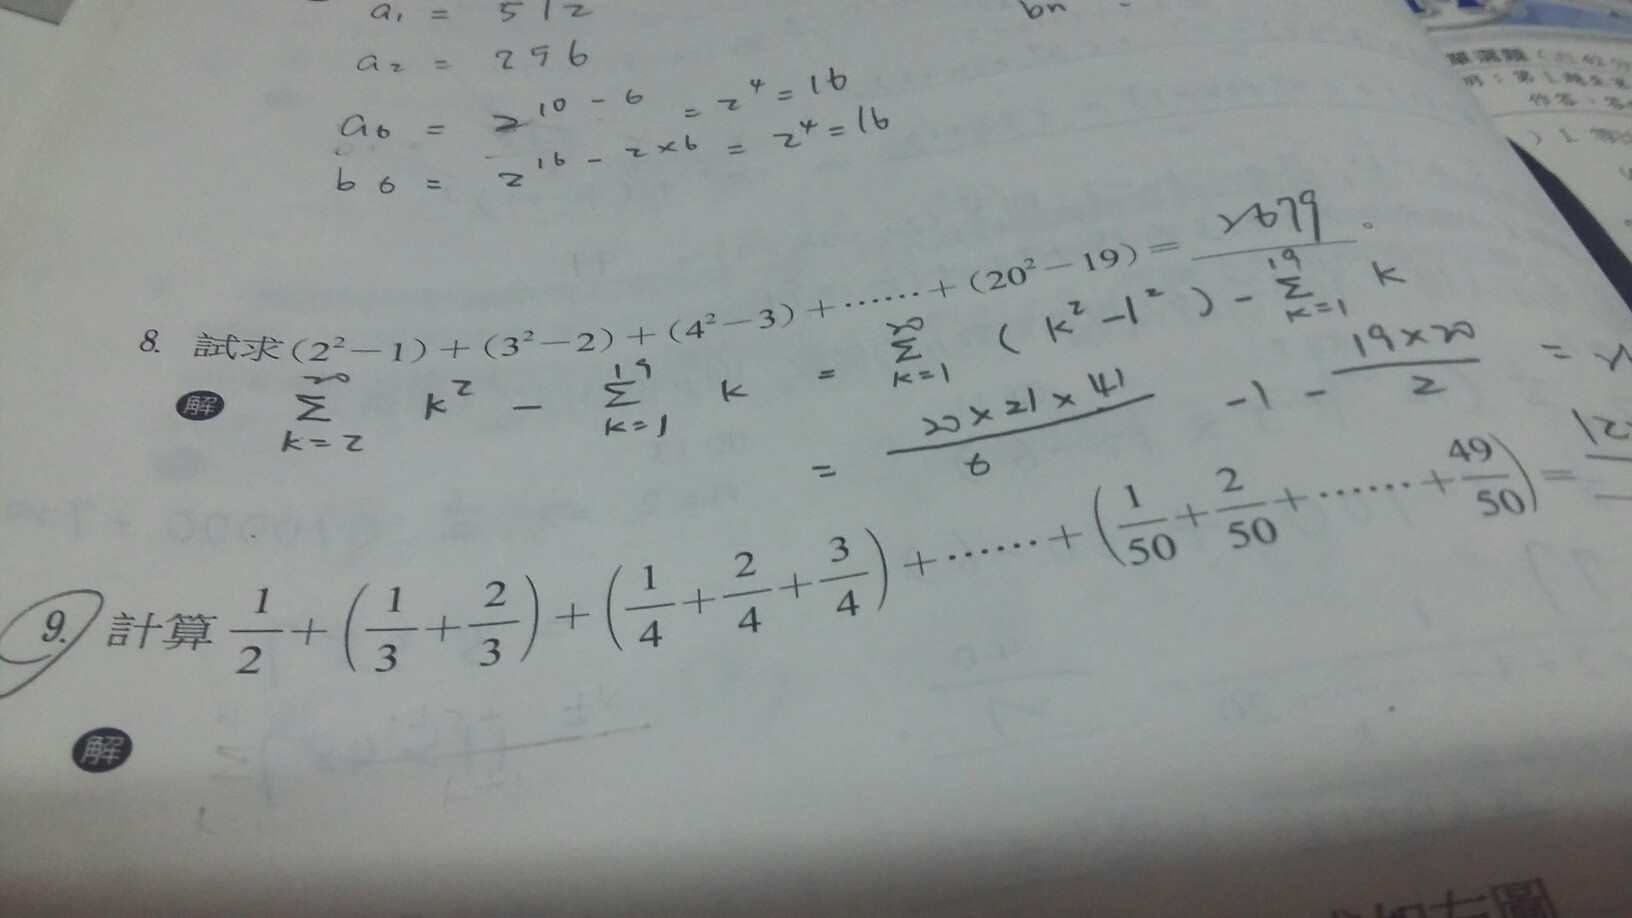 a₁ = 512
bn
a₂ = 256
a₆ = 2^(10-6) = 2⁴ = 16
b₆ = 2^(16-2×6) = 2⁴ = 16
單選題
作答
8. 試求(2²－1)＋(3²－2)＋(4²－3)＋……＋(20²－19)＝ 2679 。
解 Σ(k=2, 20) k² - Σ(k=1, 19) k = Σ(k=1, 20) (k²-1²) - Σ(k=1, 19) k
= 20×21×41/6 -1 - 19×20/2 =
9. 計算 1/2＋(1/3＋2/3)＋(1/4＋2/4＋3/4)＋……＋(1/50＋2/50＋……＋49/50)＝
解
如右圖